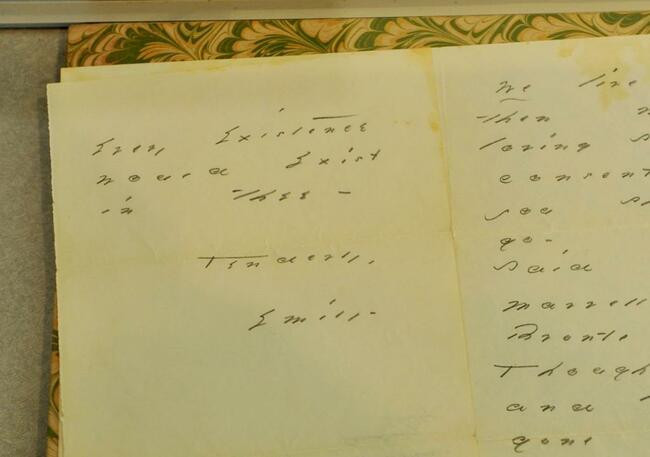 Every Existence
would Exist
in thee -
Tenderly,
Emily -
we live
then
loving
consent
you
go -
said
marvell
Bronte
Though
and
gone